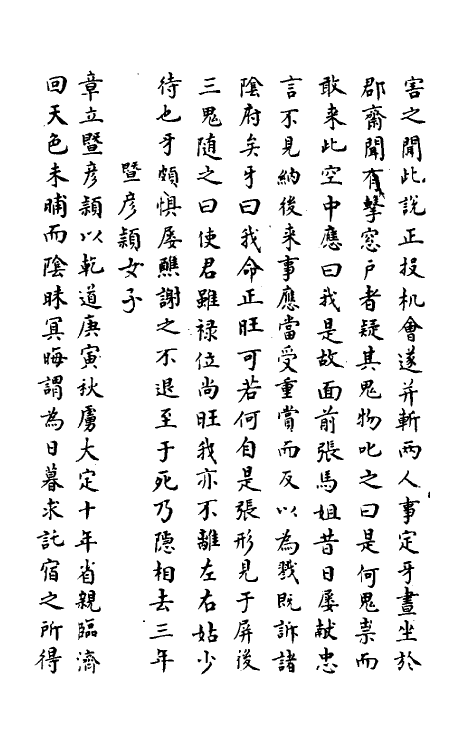 害之聞此說正投机會遂并斬兩人事定牙晝坐於
郡齋聞有擊窓戶者疑其鬼物叱之曰是何鬼祟而
敢来此空中應曰我是故面前張馬姐昔日屡献忠
言不見納後来事應當受重賞而反以為戮既訴諸
陰府矣牙曰我命正旺可若何自是張形見于屏後
三鬼随之曰使君雖禄位尚旺我亦不離左右姑少
待也牙頗惧屡醮謝之不退至于死乃隱相去三年
暨彦穎女子
章立暨彦穎以乾道庚寅秋虜大定十年省親臨濟
回天色未晡而陰昧冥晦謂為日暮求託宿之所得